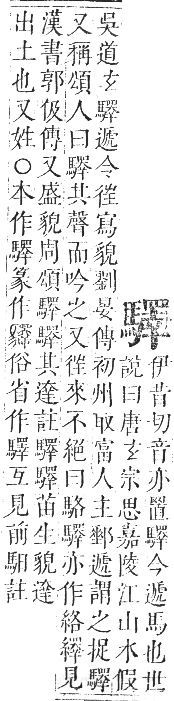 驛
伊昔切音亦置驛今遞馬也世
說曰唐玄宗思嘉陵江山水假
吳道玄驛遞令徃寫貌劉晏傳初州取富人主郵遞謂之捉驛
又稱頌人曰驛其聲而吟之又徃來不絕曰駱驛亦作絡繹見
漢書郭伋傳又盛貌周頌驛驛其達註驛驛苗生貌達
出土也又姓○本作驛篆作俗省作驛互見前馹註